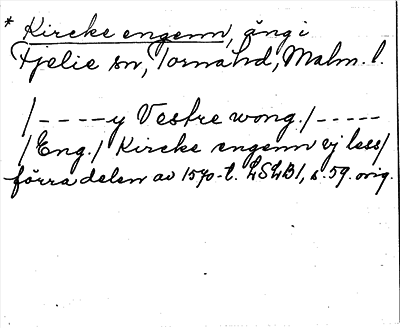 * Kircke engenn, äng i
Fjelie sn, Torna hd, Malm. l.
/----y Vestre wong./-----
/Eng./ Kircke engenn vj less/
förra delen av 1570-t. LSLB1, s. 59. orig.